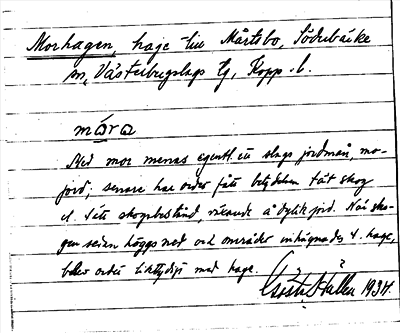 Morhagen, hage till Mårtsbo, Söderbärke
sn, Västerbergslags tg, Kopp. l.
mɷ́rɷ
Med mor menas egentl. ett slags jordmån, mo-
jord; senare har ordet fått betydelsen tät skog
el. tätt skogsbestånd, växande å dylik jord. När sko-
gen sedan höggs ned och området inhägnades t. hage,
blev ordet liktydigt med hage.
Gösta Hallén 1934.